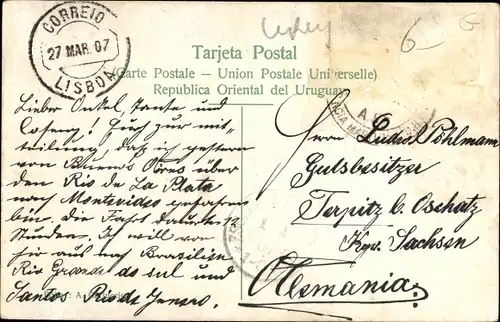 CORREIO
27 MAR. 07
LISBOA
Tarjeta Postal
(Carte Postale — Union Postale Universelle)
Republica Oriental del Uruguay
Lieber Onkel Tante und
Euch zur mit-
teilung, daß ich gestern
von Buenos Aires über
den Rio de La Plata
nach Montevideo gefahren
bin. Die Fahrt dauerte 12
Stunden. Ich will von
hir aus nach Brasilien
Rio Grande do sul und
Santos Rio de Jenero.
Herrn Ludw. Pöhlmann
Gutsbesitzer
Terpitz b. Oschatz
Kgr. Sachsen
Alemania